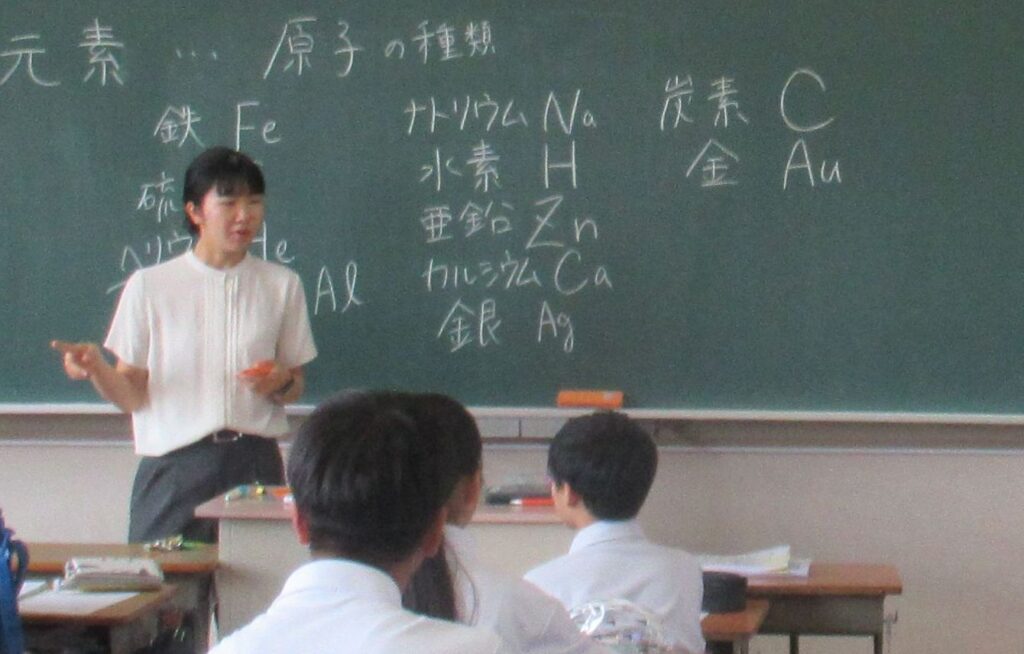 元素 … 原子の種類
鉄 Fe
硫
ヘリウ He
Al
ナトリウム Na
水素 H
亜鉛 Zn
カルシウム Ca
銀 Ag
炭素 C
金 Au